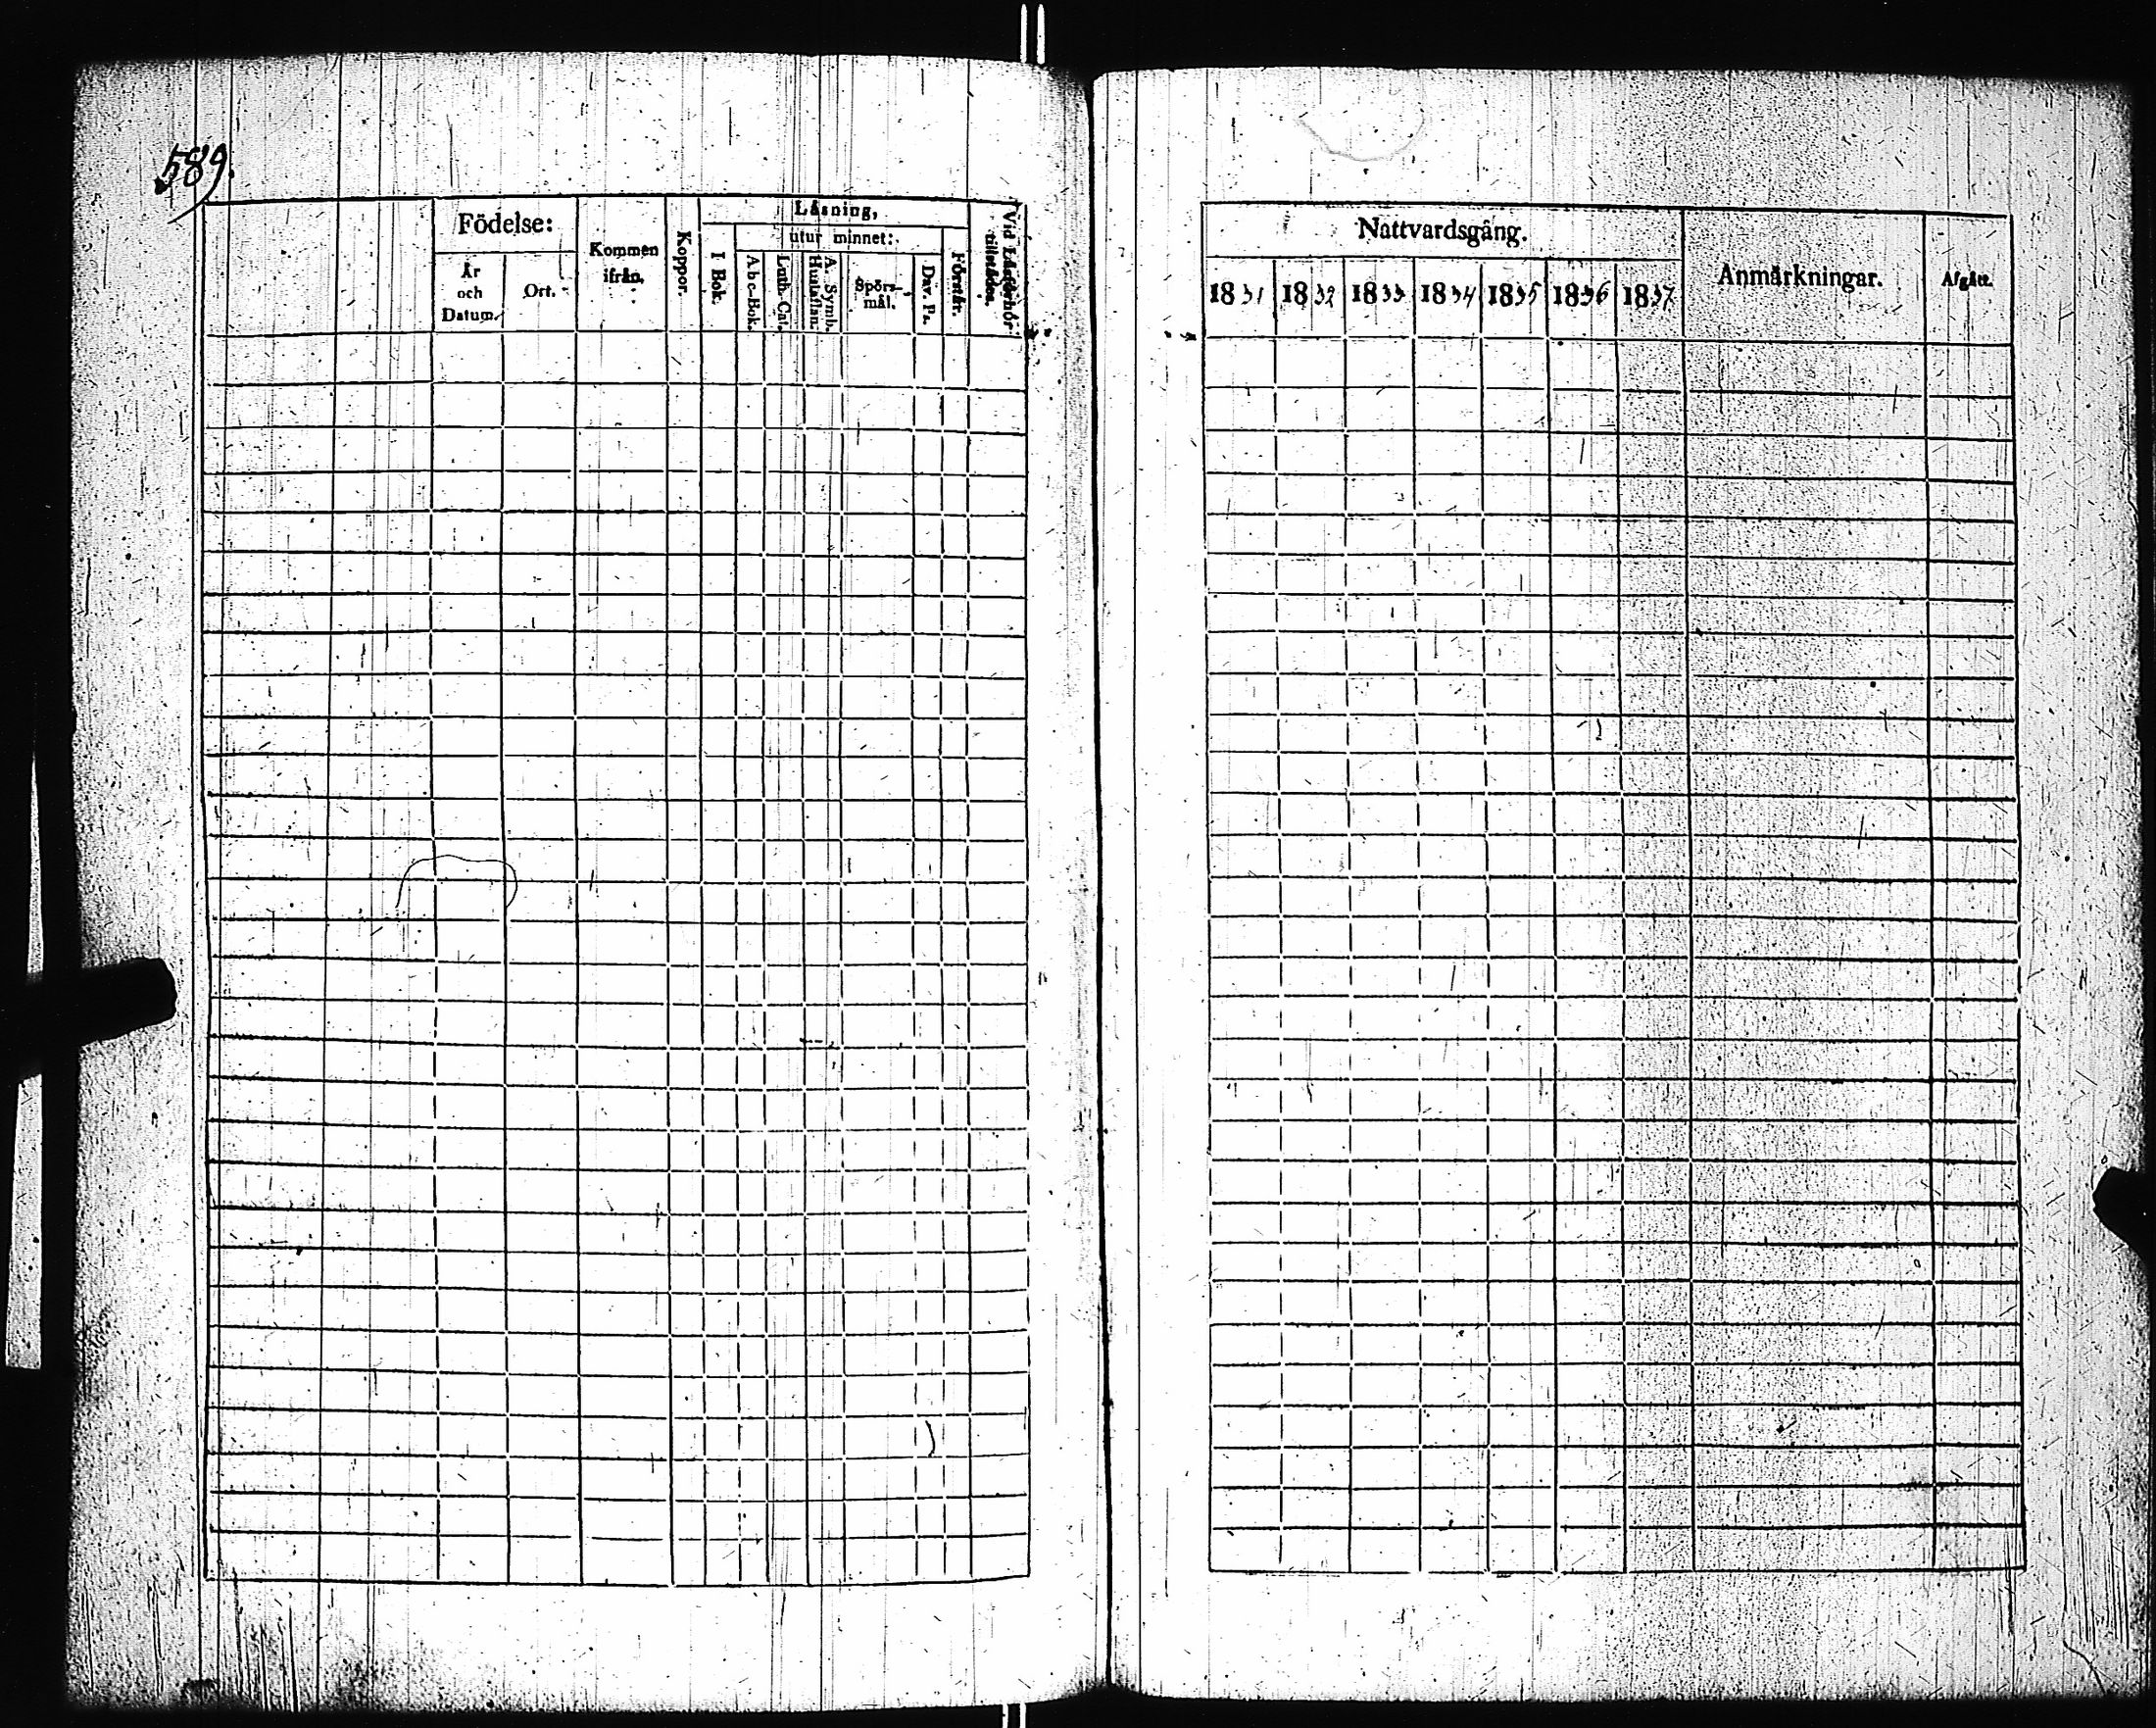 589.
Födelse:
År och Datum.
Ort.
Kommen ifrån.
Koppor.
Läsning,
I Bok.
utur minnet:
Abc-Bok.
Luth. Cat.
A. Symb. Hustaflan.
Spörs-mål.
Dav. Ps.
Förstår.
Vid Läsförhör tillstädes.
Nattvardsgång.
1831 1832 1833 1834 1835 1836 1837
Anmärkningar.
Afgått.